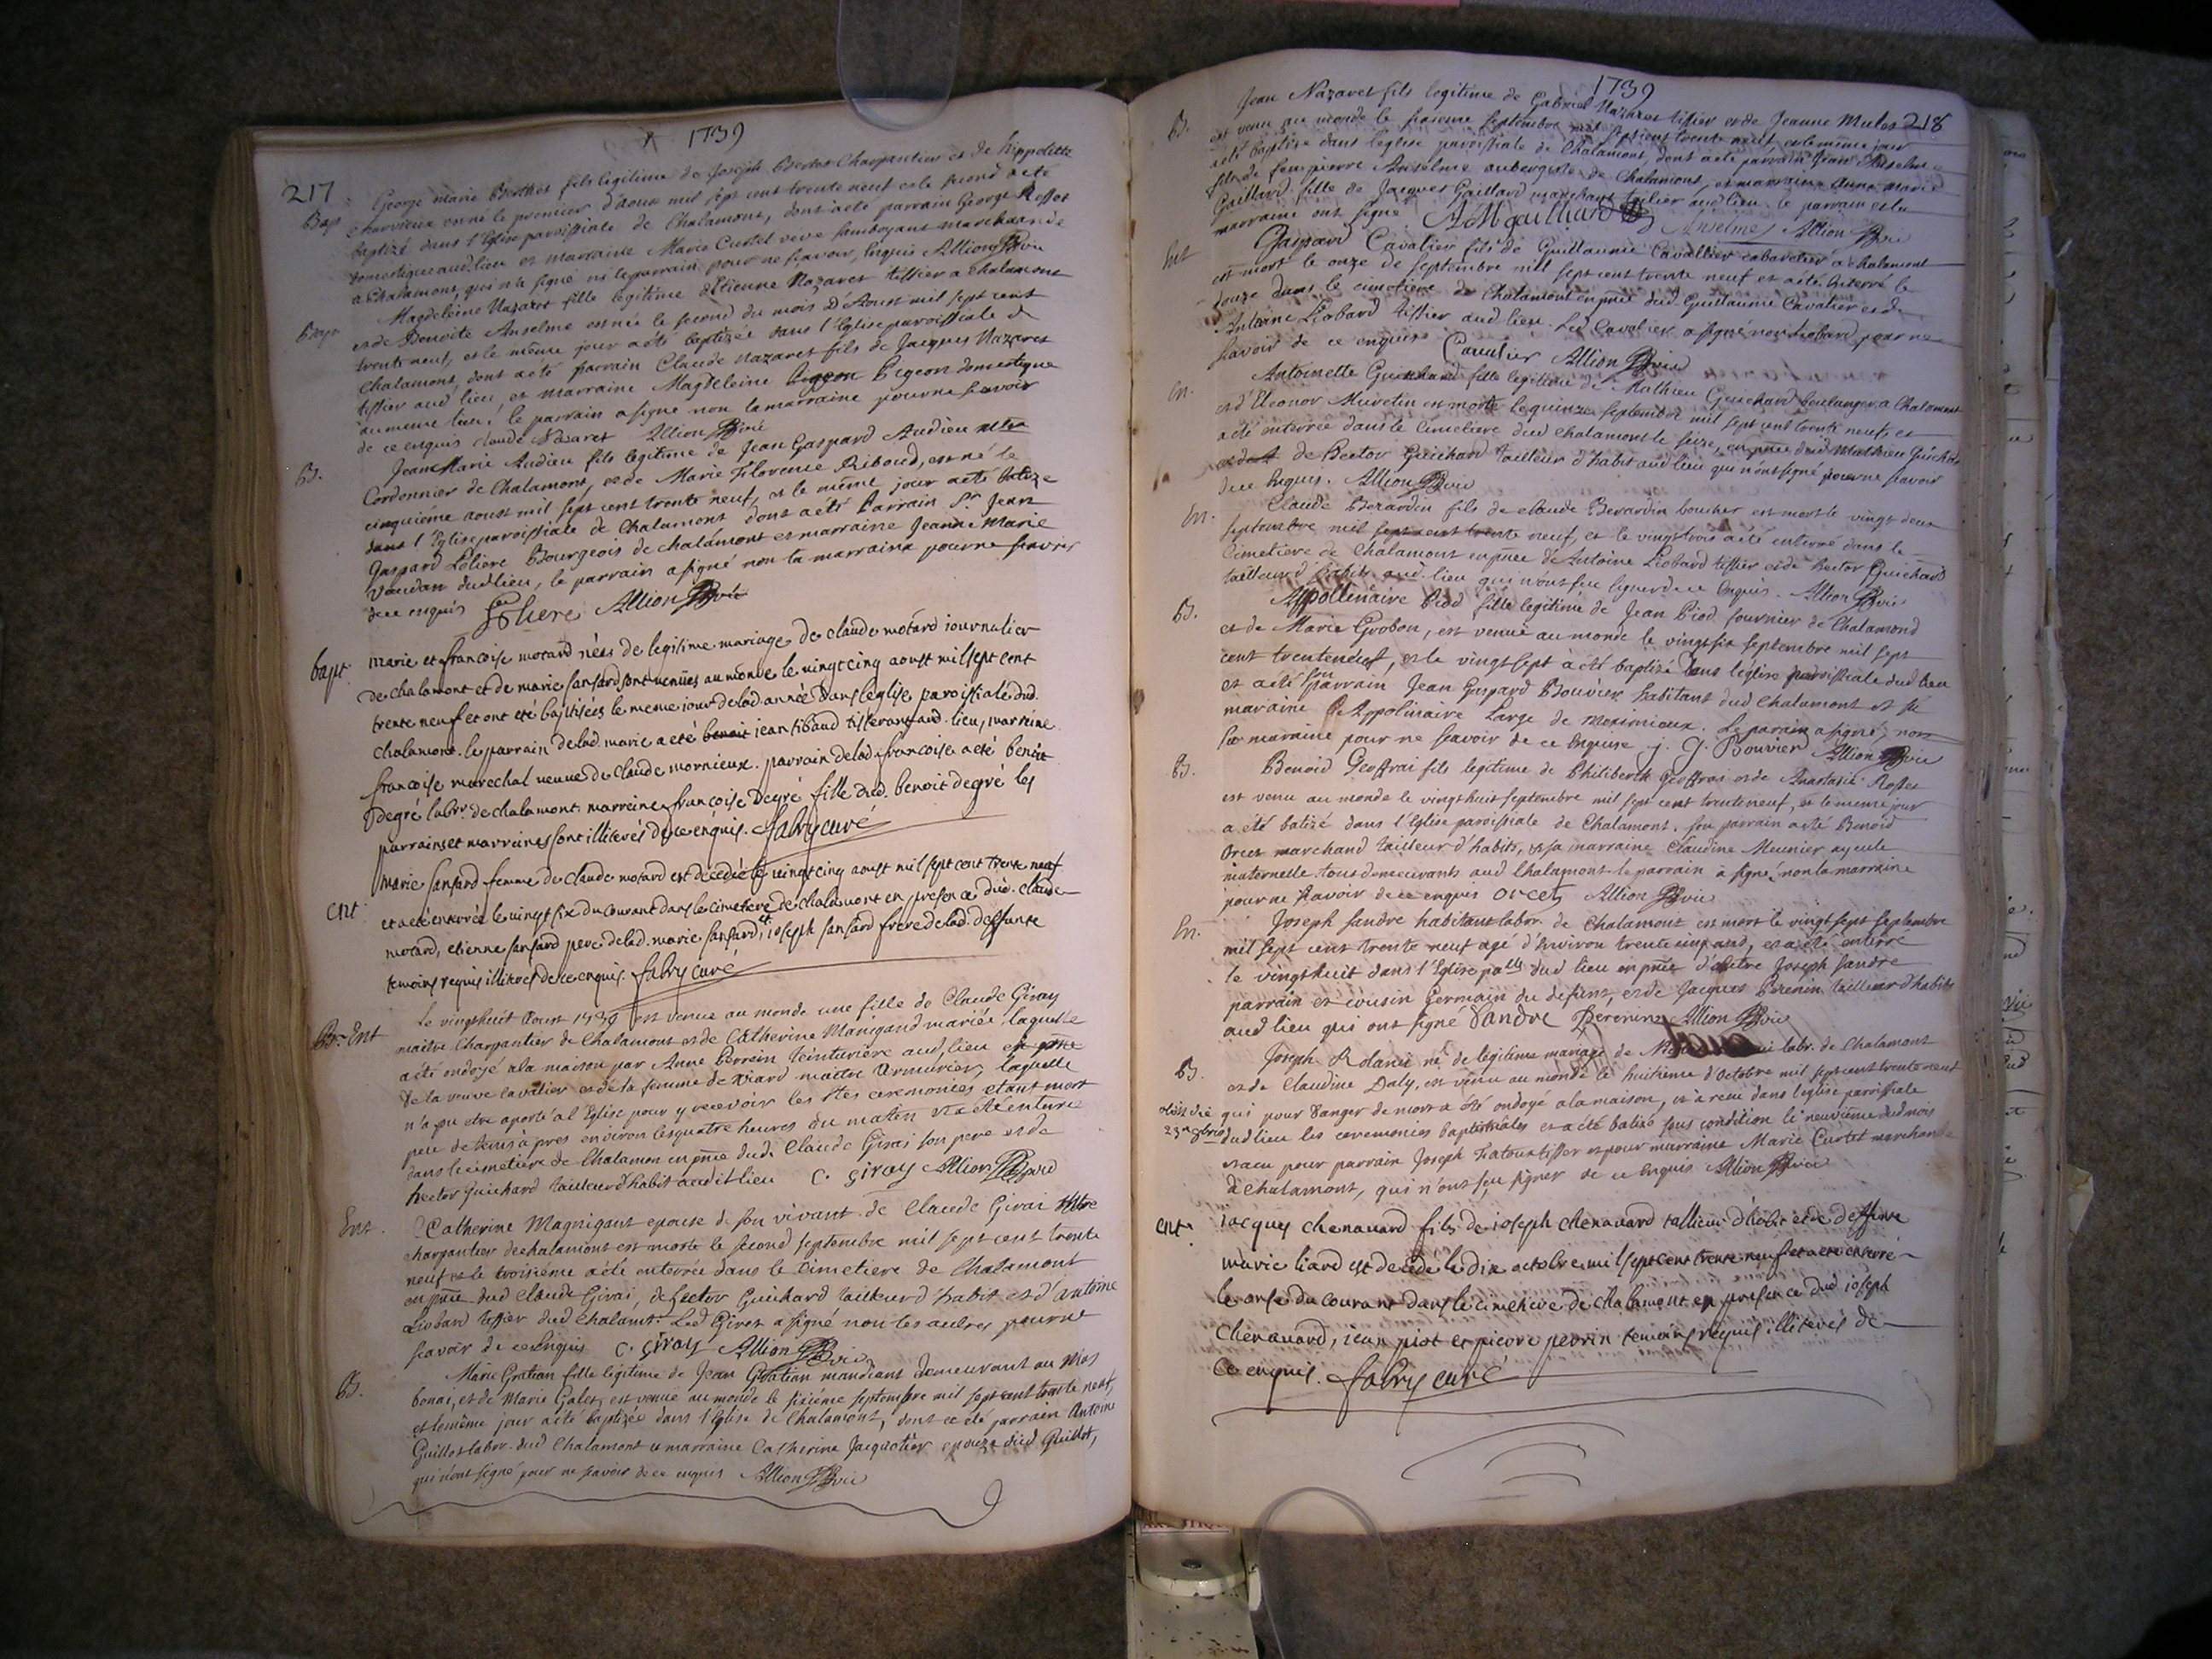 1739
217
Bap George marie Berthet fils legitime de Joseph Bertet Charpantier et de hippolitte
charvieux est né le premier d'aoust mil sept cent trente neuf et le second acté
baptizé dans l'Eglise paroissiale de Chalamont, dont acté parrain George Rosset
domestique aud lieu et marraine Marie Curtet veve
a Chalamont, qui n'a signé ni le parrain pour ne sçavoir, enquis Allion vic
Bap. Magdeleine Nazaret fille legitime d'Etienne Nazaret tissier a chalamont
et de Benoite Anselme est née le second du mois D'Aoust mil sept cent
trente neuf, et le même jour acté baptizée dans l'Eglise paroissiale de
Chalamont, dont acté parrain Claude Nazaret fils de Jacques Nazaret
tissier aud lieu et marraine Magdeleine Pigeon domestique
au meme lieu, le parrain a signé non la marraine pour ne scavoir
de ce enquis Claude Nazaret Allion vic
B. Jean Marie Audieu fils legitime de Jean Gaspard Audieu
Cordonnier de Chalamont, et de Marie Florence Riboud, est né le
cinquiéme aoust mil sept cent trente neuf, et le même jour acté batizé
dans l'Eglise paroissiale de Chalamont dont acté Parrain Sr. Jean
Gaspard Loliere Bourgeois de chalamont et marraine Jeanne Marie
Vaudan dud lieu, le parrain a signé non la marraine pour ne scavoir
de ce enquis Loliere Allion vic
bapt. marie et francoise motard nées de legitime mariage de claude motard iournalier
de chalamont et de marie sansard sont venües au monde le vingt cinq aoust mil sept cent
trente neuf et ont eté baptisées le meme iour de lad. année dans l'eglise paroissiale dud.
chalamont. le parrain de lad. marie a eté benoit jean tibaud tisserant aud. lieu, marreine
francoise marechal veuve de claude mornieux. parrain de lad. francoise a eté benoit
degré labr. de chalamont. marreine francoise degré fille dud. benoit degré les
parrains et marreines sont illiterés de ce enquis. fabry curé
ent. marie sansard femme de claude motard est decedée le vingt cinq aoust mil sept cent trente neuf
et a eté enterrée le vingt six du courant dans le cimetiere de chalamont en presence dud. claude
motard, etienne sansard pere de lad. marie sansard, et ioseph sansard frere de lad. deffunte
temoins requis illiterés de ce enquis. fabry curé
B. Ent Le vingthuit Aoust 1739 est venue au monde une fille de Claude Giray
maitre Charpantier de Chalamont et de Catherine Manigand mariée, laquelle
acté ondoyé a la maison par Anne Perrein teinturiére aud. lieu en pnce
de la veuve cavalier et de la femme de viard maitre Armurier, laquelle
n'a pu etre aporté a l'Eglise pour y recevoir les stes ceremonies etant mort
peu de tems après environ les quatre heures du matin et a été enterré
dans le cimetiere de Chalamon en pnce dud. Claude Girai son pere et de
hector Guichard tailleur d'habit audit lieu C. Giray Allion vic
Ent. Catherine Magnigant epouse de son vivant de Claude Girai Mtre
charpantier de chalamont est morte le second septembre mil sept cent trente
neuf et le troisiéme acté enterrée dans le Cimetiere de Chalamont
en pnce dud Claude Girai, de hector Guichard tailleur d'habit et d'antoine
Liobard tissier dud Chalamt. Led Giret a signé non les autres pour ne
scavoir de ce enquis C. Giray Allion vic
B. Marie Gratian fille legitime de Jean Gratian mandiant demeurant au Mas
bonai, et de Marie Galet, est venue au monde le sixiéme septembre mil sept cent trente neuf,
et le même jour acté baptizée dans l'Eglise de Chalamont, dont a été parrain Antoine
Guillot labr. dud Chalamont et marraine Catherine Jacquetier epouze dud Guillot,
qui n'ont signé pour ne scavoir de ce enquis Allion vic
1739
218
B. Jean Nazaret fils legitime de Gabriel Nazaret tissier et de Jeanne Mulet
est venu au monde le sixieme septembre mil sept cent trente neuf et le même jour
acté baptizé dans l'eglise paroissiale de Chalamont, dont acté parrain Jean Anselme
fils de feu pierre Anselme aubergiste de Chalamont, et marraine Anne marie
Gaillard fille de Jacques Gaillard marchand aud lieu. le parrain et la
marraine ont signé A M gaillard Anselme Allion vic
Ent Gaspard Cavalier fils de Guillaume Cavallier cabaretier a chalamont
est mort le onze de septembre mil sept cent trente neuf et a été enterré le
douze dans le cimetiere de Chalamont en pnce dud. Guillaume Cavalier et de
Antoine Liobard tissier aud lieu. Led Cavalier a signé non Liobard pour ne
scavoir de ce enquis Cavalier Allion vic
En. Antoinette Guichard fille legitime de Mathieu Guichard boulanger a Chalamont
et d'Eleonor Muvetin est morte le quinze septembre mil sept cent trente neuf, et
a été enterrée dans le Cimetiere dud chalamont le seize, en pnce dud Mathieu Guichard
et de Hector Guichard tailleur d'habit aud lieu qui n'ont signé pour ne scavoir
de ce enquis. Allion vic
En. Claude Berardin fils de claude Berardin boucher est mort le vingt deux
septembre mil sept cent trente neuf, et le vingt trois a été enterré dans le
Cimetiere de Chalamont en pnce de Antoine Liobard tissier et de hector Guichard
tailleur d'habit aud. lieu qui n'ont sceu signer de ce enquis. Allion vic
B. Appollinaire Piod fille legitime de Jean Piod fournier de Chalamond
et de Marie Grobon, est venuë au monde le vingt six septembre mil sept
cent trente neuf, et le vingt sept à été baptizé dans l'eglise paroissiale dud lieu
et a été son parrain Jean Gaspard Bouvier habitant dud Chalamont et sa
maraine Appolinaire Large de Meximieux. Le parain a signé, non
la maraine pour ne scavoir de ce enquise j. J. Bouvier Allion vic
B. Benoid Geoffrai fils legitime de Philiberth Geoffrai et de Anastasie Rosset
est venu au monde le vingt huit septembre mil sept cent trente neuf, et le meme jour
a été batizé dans l'Eglise paroissiale de Chalamont. son parrain acté Benoid
Orcet marchand tailleur d'habits, et sa marraine Claudine Meunier ayeule
maternelle tous demeurants aud Chalamont le parrain a signé, non la marraine
pour ne scavoir de ce enquis orcet Allion vic
En. Joseph sandre habitant labor. de Chalamont est mort le vingt sept septembre
mil sept cent trente neuf agé d'environ trente cinq ans, et a été enterré
le vingt huit dans l'Eglise palle dud lieu en pnce d'autre Joseph sandre
parrain et cousin germain du defunt, et de Jacques Perenin tailleur d'habits
aud lieu qui ont signé Sandre Perenin Allion vic
B. Joseph Rolanie né de legitime mariage de labr. de Chalamont
et de Claudine Daly, est venu au monde le huitieme d'octobre mil sept cent trente neuf
qui pour danger de mort a été ondoyé a la maison, et a receu dans l'eglise paroissiale
dud lieu les ceremonies baptismales et a été batizé sous condition le neuvième dud mois
et a eu pour parrain Joseph tissier et pour marraine Marie Curtet marchande
à Chalamont, qui n'ont sçu signer de ce enquis Allion vic
ent. iacques chenavard fils de ioseph chenavard tallieur d'habit et de deffunte
marie liard est decedé le dix octobre mil sept cent trente neuf et a eté enterré
le onse du courant dans le cimetiere de chalamont en presence dud ioseph
chenavard, iean piot et pierre perrin temoins requis illiterés de
ce enquis. fabry curé